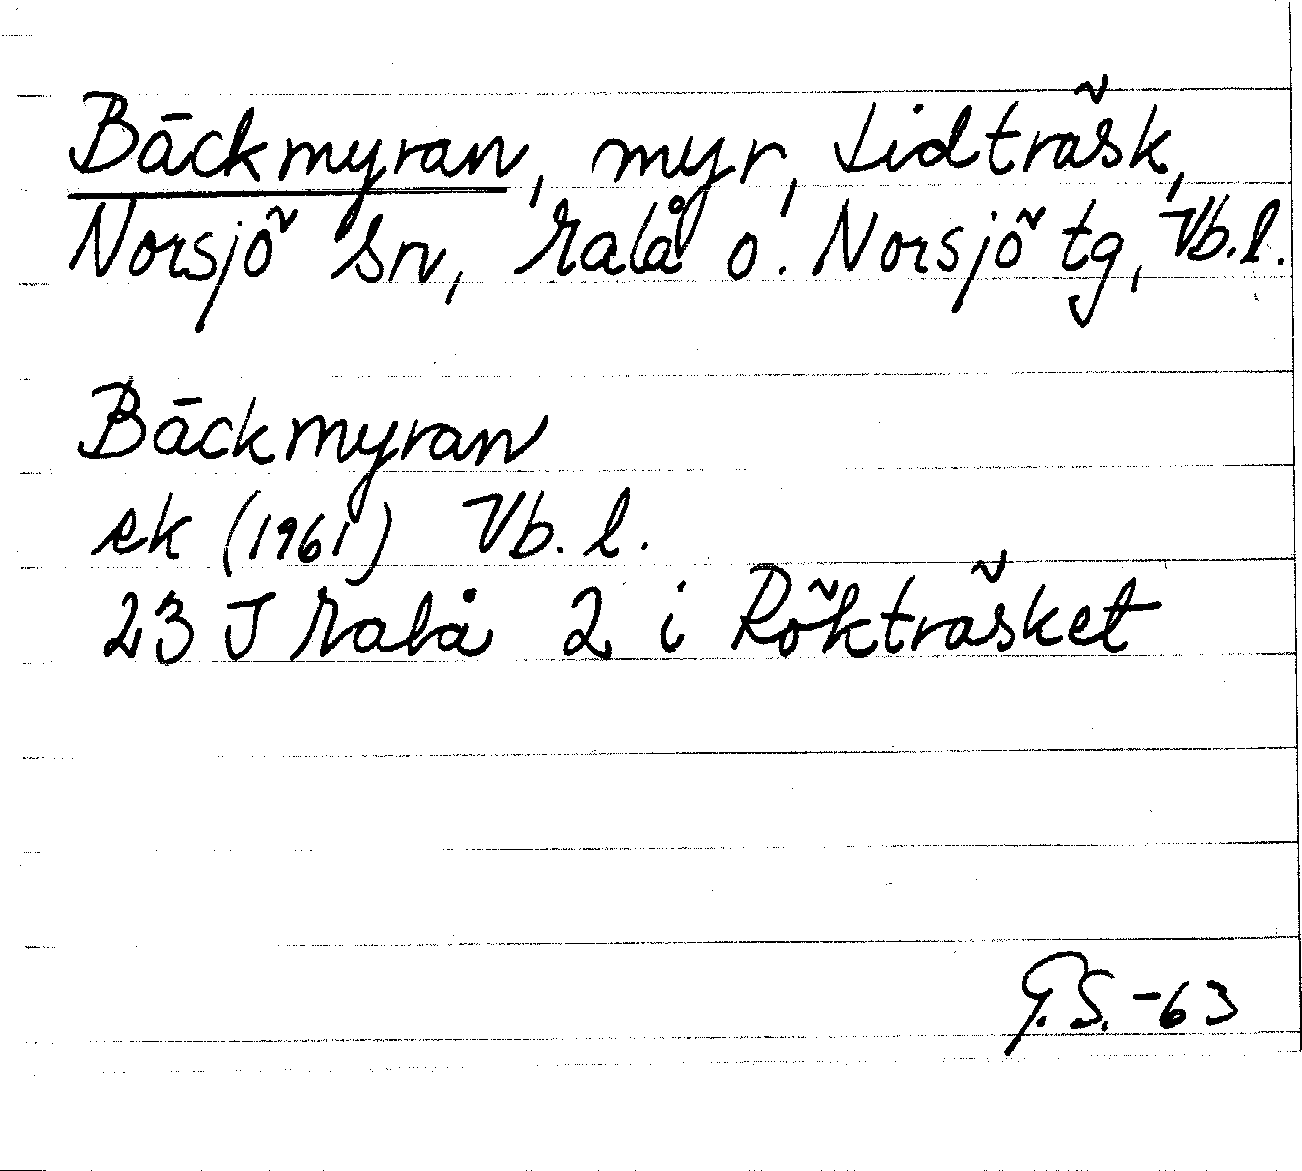 Bäckmyran, myr, Lidträsk,
Norsjö sn, Malå o. Norsjö tg, Vb.l.
Bäckmyran
ek (1961) Vb. l.
23 J Malå 2 i Rökträsket
G.S. -63